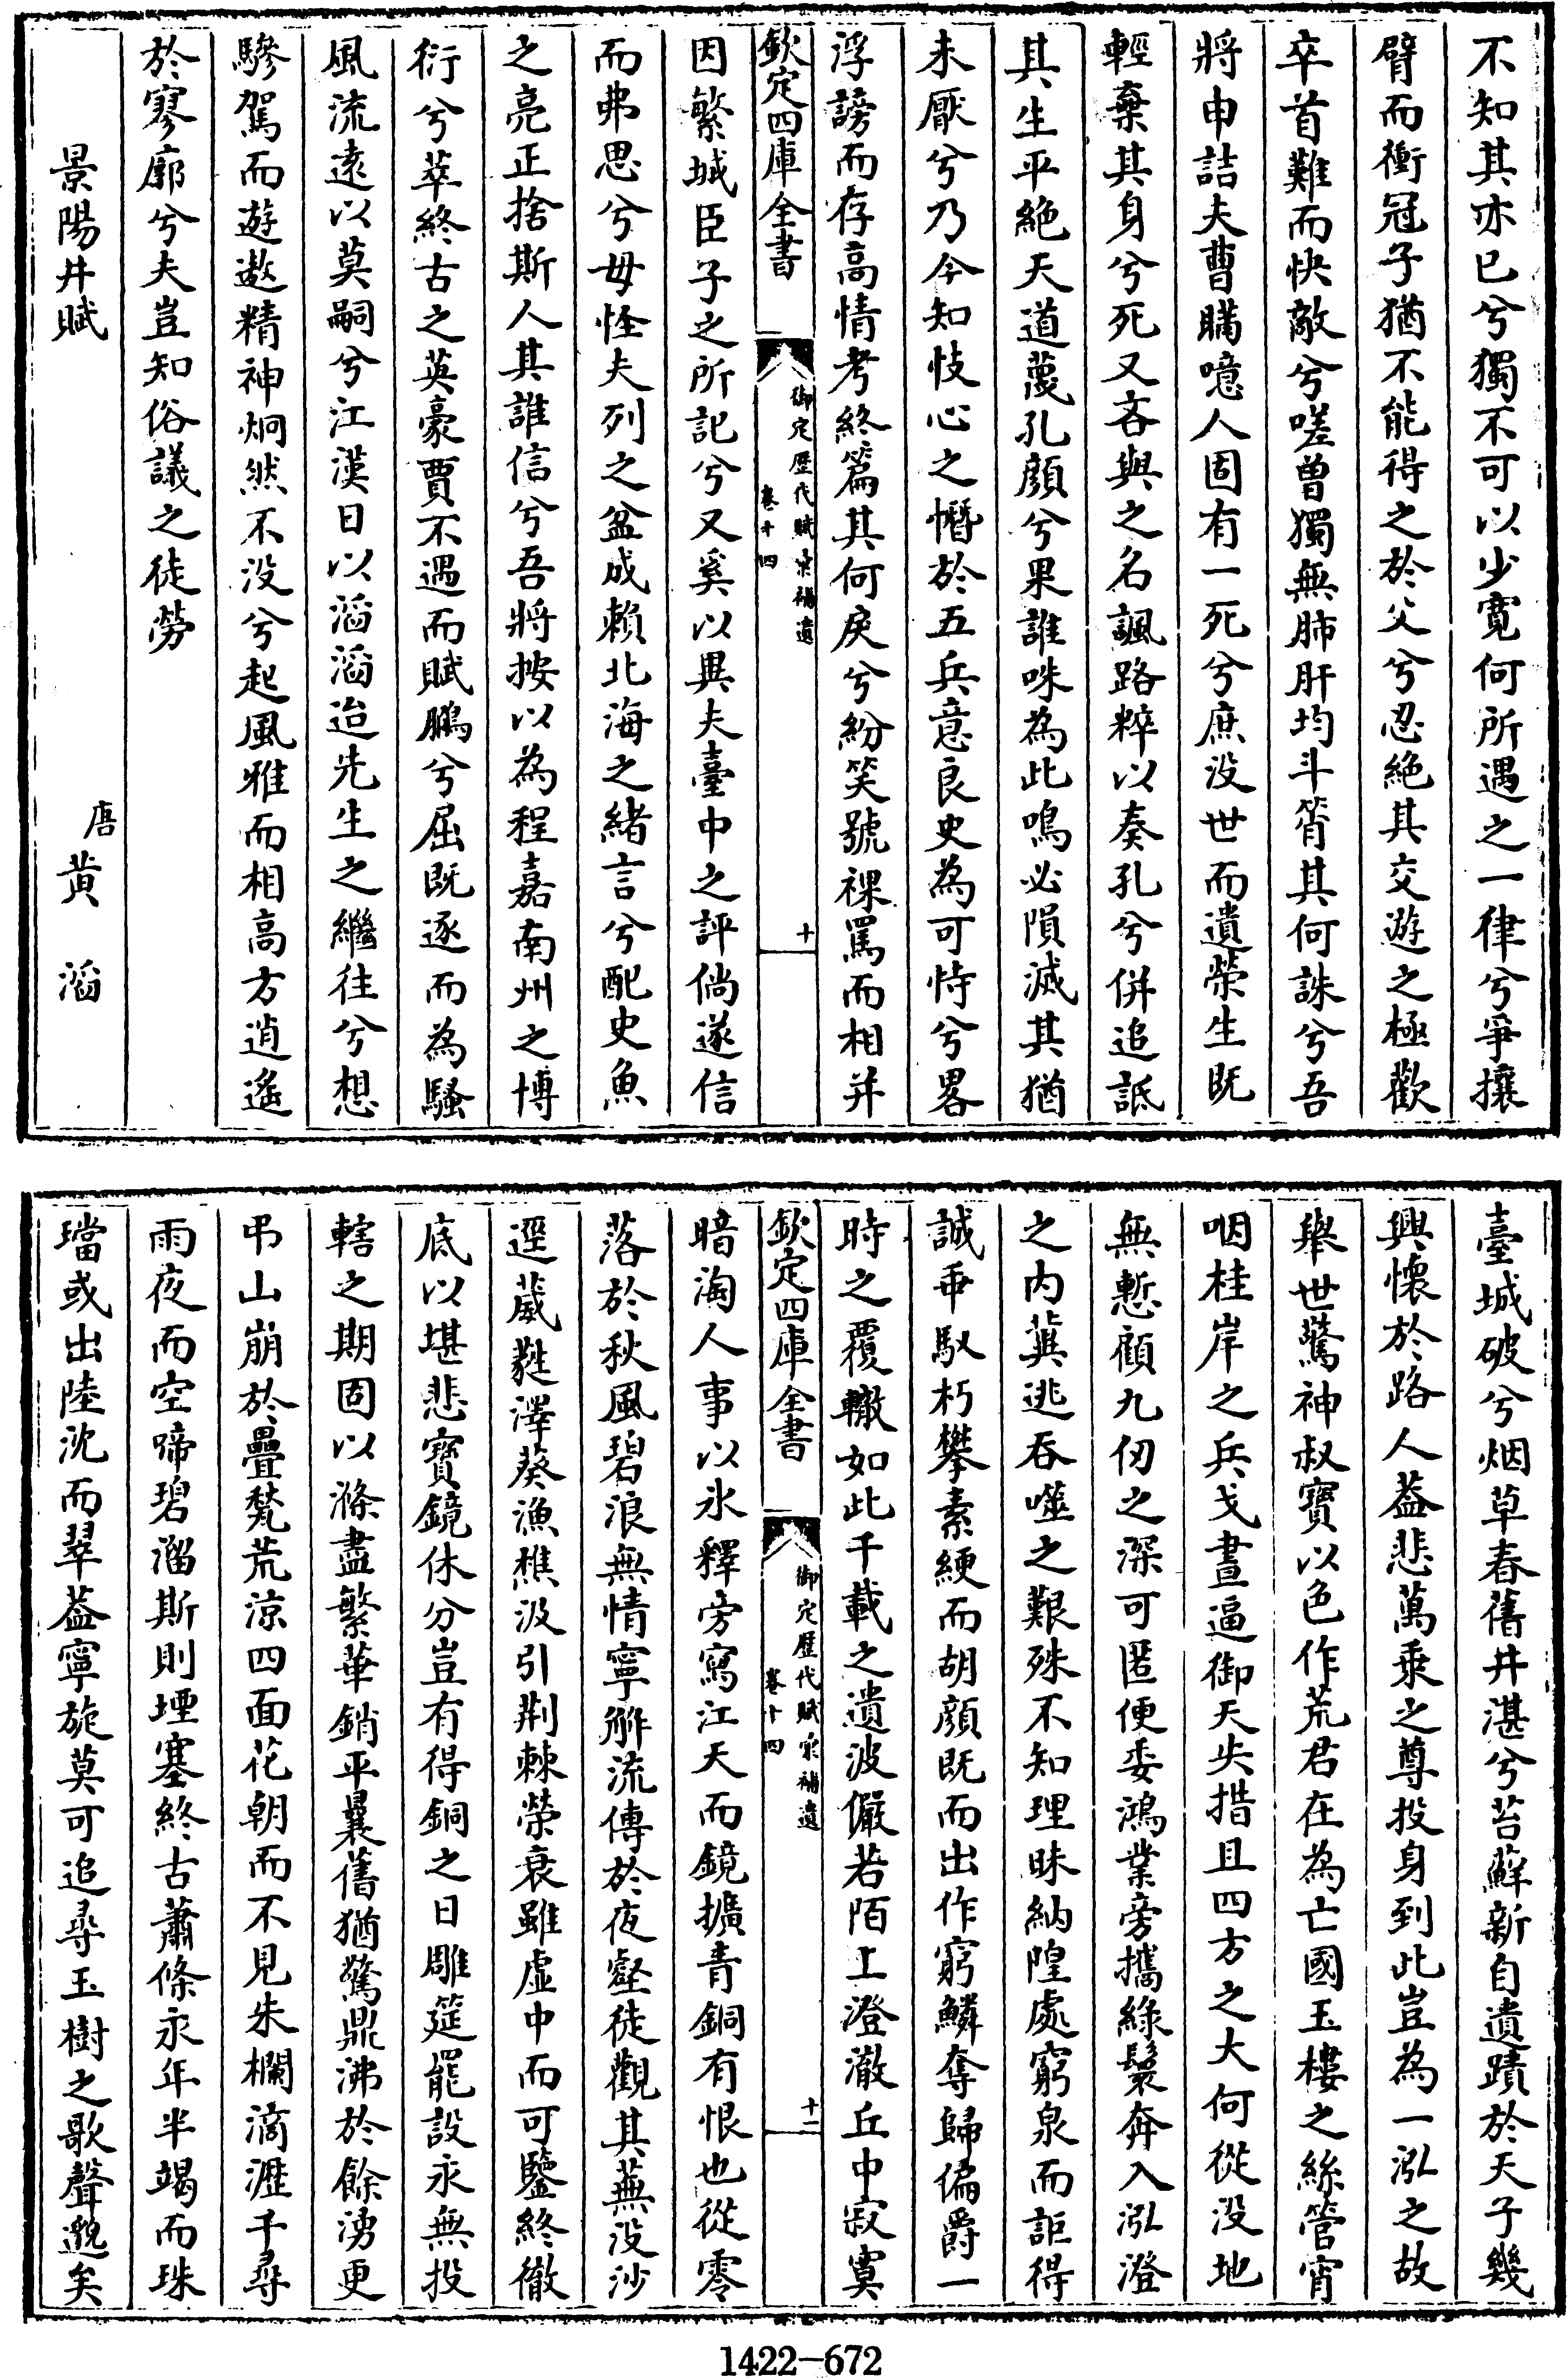 不知其亦已兮獨不可以少寛何所遇之一律兮爭攘
臂而衝冠子猶不能得之於父兮忍絶其交遊之極歡
卒首難而快敵兮嗟曾獨無肺肝均斗筲其何誅兮吾
將申詰夫曹瞞噫人固有一死兮庶没世而遺榮生既
輕棄其身兮死又吝與之名諷路粹以奏孔兮併追詆
其生平絶天道蔑孔顔兮果誰咮為此鳴必隕滅其猶
未厭兮乃今知忮心之憯於五兵意良史為可恃兮畧
浮謗而存高情考終篇其何戾兮紛笑號裸罵而相并
欽定四庫全書
御定歴代賦彙補遺
卷十四
十
因繁城臣子之所記兮又奚以異夫臺中之評倘遂信
而弗思兮毋怪夫列之盆成賴北海之緒言兮配史魚
之亮正捨斯人其誰信兮吾將按以為程嘉南州之博
衍兮萃終古之英豪賈不遇而賦鵬兮屈既逐而為騷
風流遠以莫嗣兮江漢日以滔滔迨先生之繼往兮想
驂駕而遊遨精神炯然不没兮起風雅而相高方逍遙
於寥廓兮夫豈知俗議之徒勞
景陽井賦
唐黄滔
臺城破兮烟草春舊井湛兮苔蘚新自遺蹟於天子幾
興懷於路人葢悲萬乘之尊投身到此豈為一泓之故
舉世驚神叔寶以色作荒君在為亡國玉樓之絲管宵
咽桂岸之兵戈晝逼御天失措且四方之大何從没地
無慙顧九仞之深可匿便委鴻業旁攜綠鬟奔入泓澄
之内冀逃吞噬之艱殊不知理昧納隍處窮泉而詎得
誠乖馭朽攀素綆而胡顔既而出作窮鱗奪歸偏爵一
時之覆轍如此千載之遺波儼若陌上澄澈丘中寂寞
欽定四庫全書
御定歴代賦彙補遺
卷十四
十一
暗淘人事以氷釋旁寫江天而鏡擴青銅有恨也從零
落於秋風碧浪無情寧觧流傳於夜壑徒觀其蕪没沙
逕葳蕤澤葵漁樵汲引荆棘榮衰雖虚中而可鑒終徹
底以堪悲寶鏡休分豈有得銅之日雕筵罷設永無投
轄之期固以滌盡繁華銷平曩舊猶驚鼎沸於餘湧更
弔山崩於疊甃荒凉四面花朝而不見朱欄滴瀝千尋
雨夜而空啼碧溜斯則堙塞終古蕭條永年半竭而珠
璫或出陸沈而翠葢寧旋莫可追尋玉樹之歌聲邈矣
1422-672